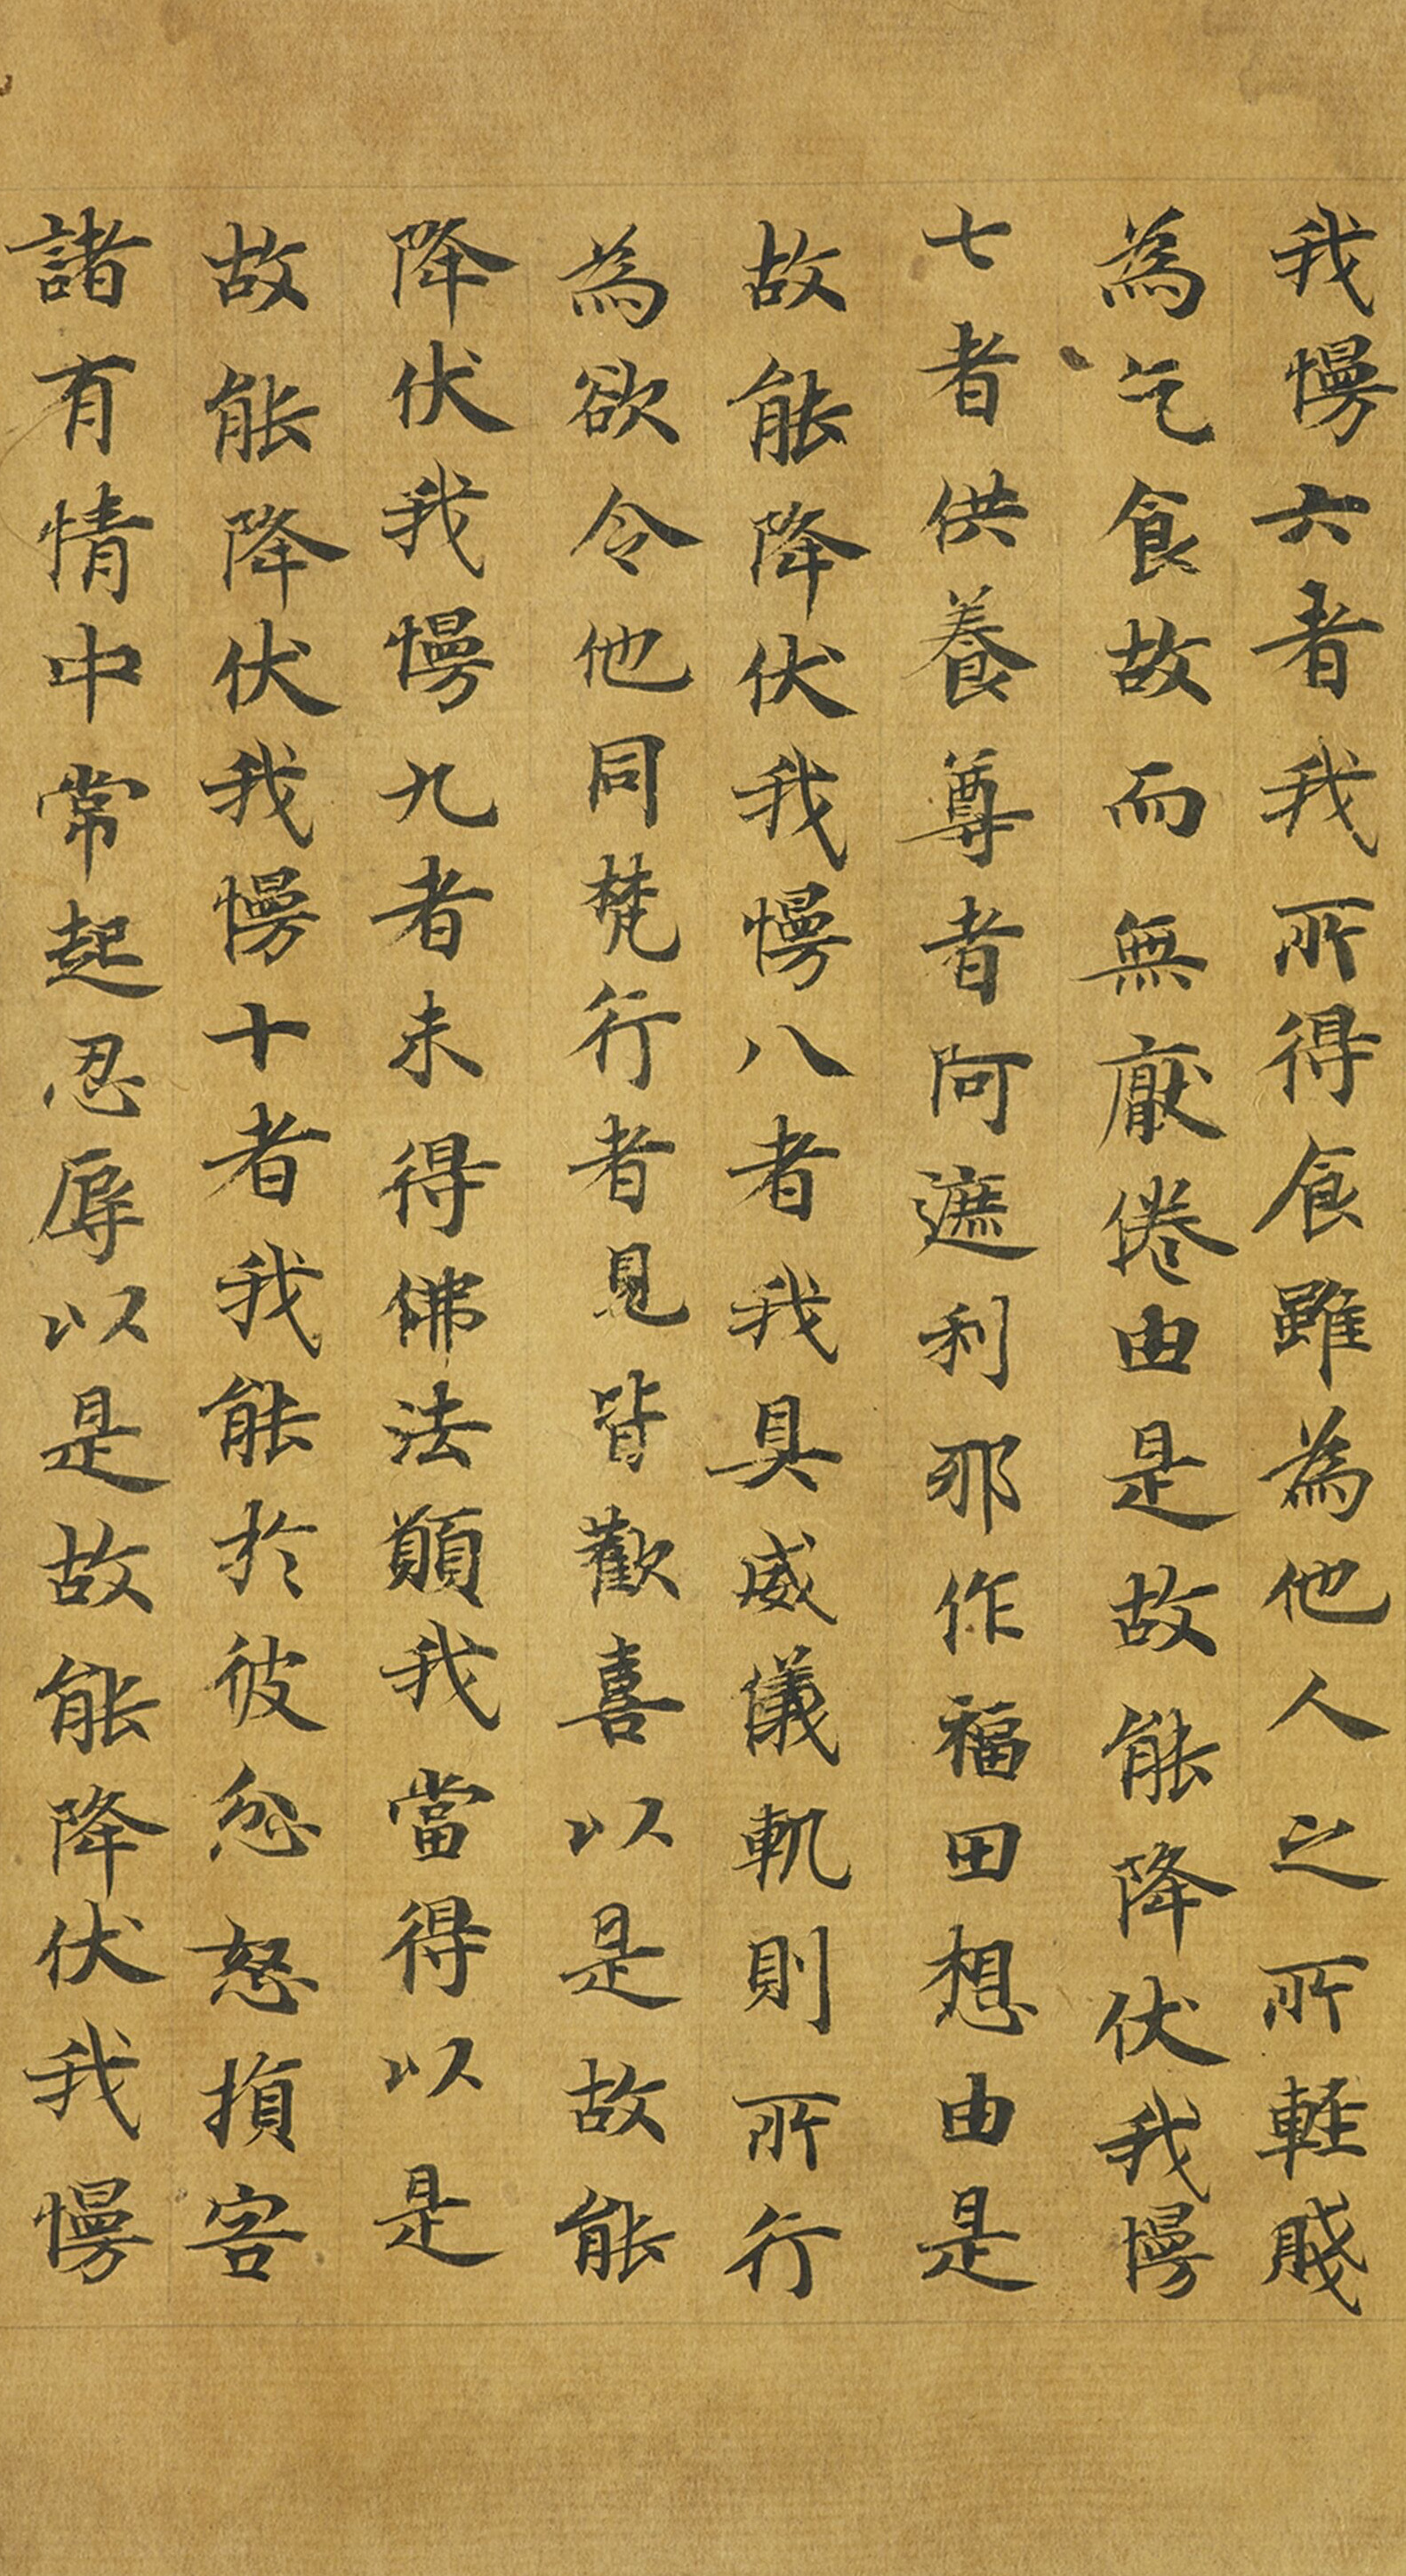 我慢六者我所得食雖為他人之所輕賤
為乞食故而無厭倦由是故能降伏我慢
七者供養尊者阿遮利耶作福田想由是
故能降伏我慢八者我具威儀軌則所行
為欲令他同梵行者見皆歡喜以是故能
降伏我慢九者未得佛法願我當得以是
故能降伏我慢十者我能於彼忿怒損害
諸有情中常起忍辱以是故能降伏我慢